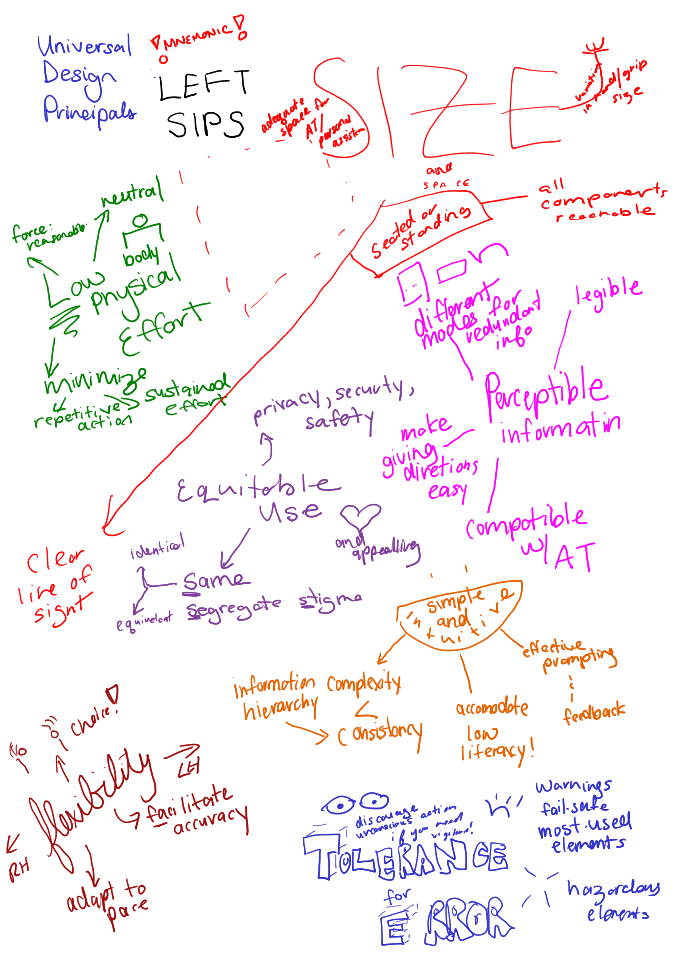 Universal
Design
Principals
! MNEMONIC !
LEFT
SIPS
SIZE
and
SPACE
adequate
space for
AT/
personal
variation
in hand/grip
size
seated or
standing
all
components
reachable
Clear
line of
signt
neutral
body
force:
reasonable
Low
Physical
Effort
minimize
repetitive
action
sustained
effort
different
modes for
redundant
info
legible
Perceptible
informatin
make
giving
diretions
easy
compatible
w/ AT
privacy, security,
safety
Equitable
Use
and
appealling
identical
Same
equivelent
Segregate stigma
simple
and
intuitive
information
hierarchy
complexity
<
Consistency
accomodate
low
literacy!
effective
prompting
feedback
choice!
flexibility
LH
RH
facilitate
accuracy
adapt to
pace
discourage
unconscious action
if you need
vigilance!
TOLERANCE
for
ERROR
Warnings
fail-safe
most-used
elements
hazardous
elements